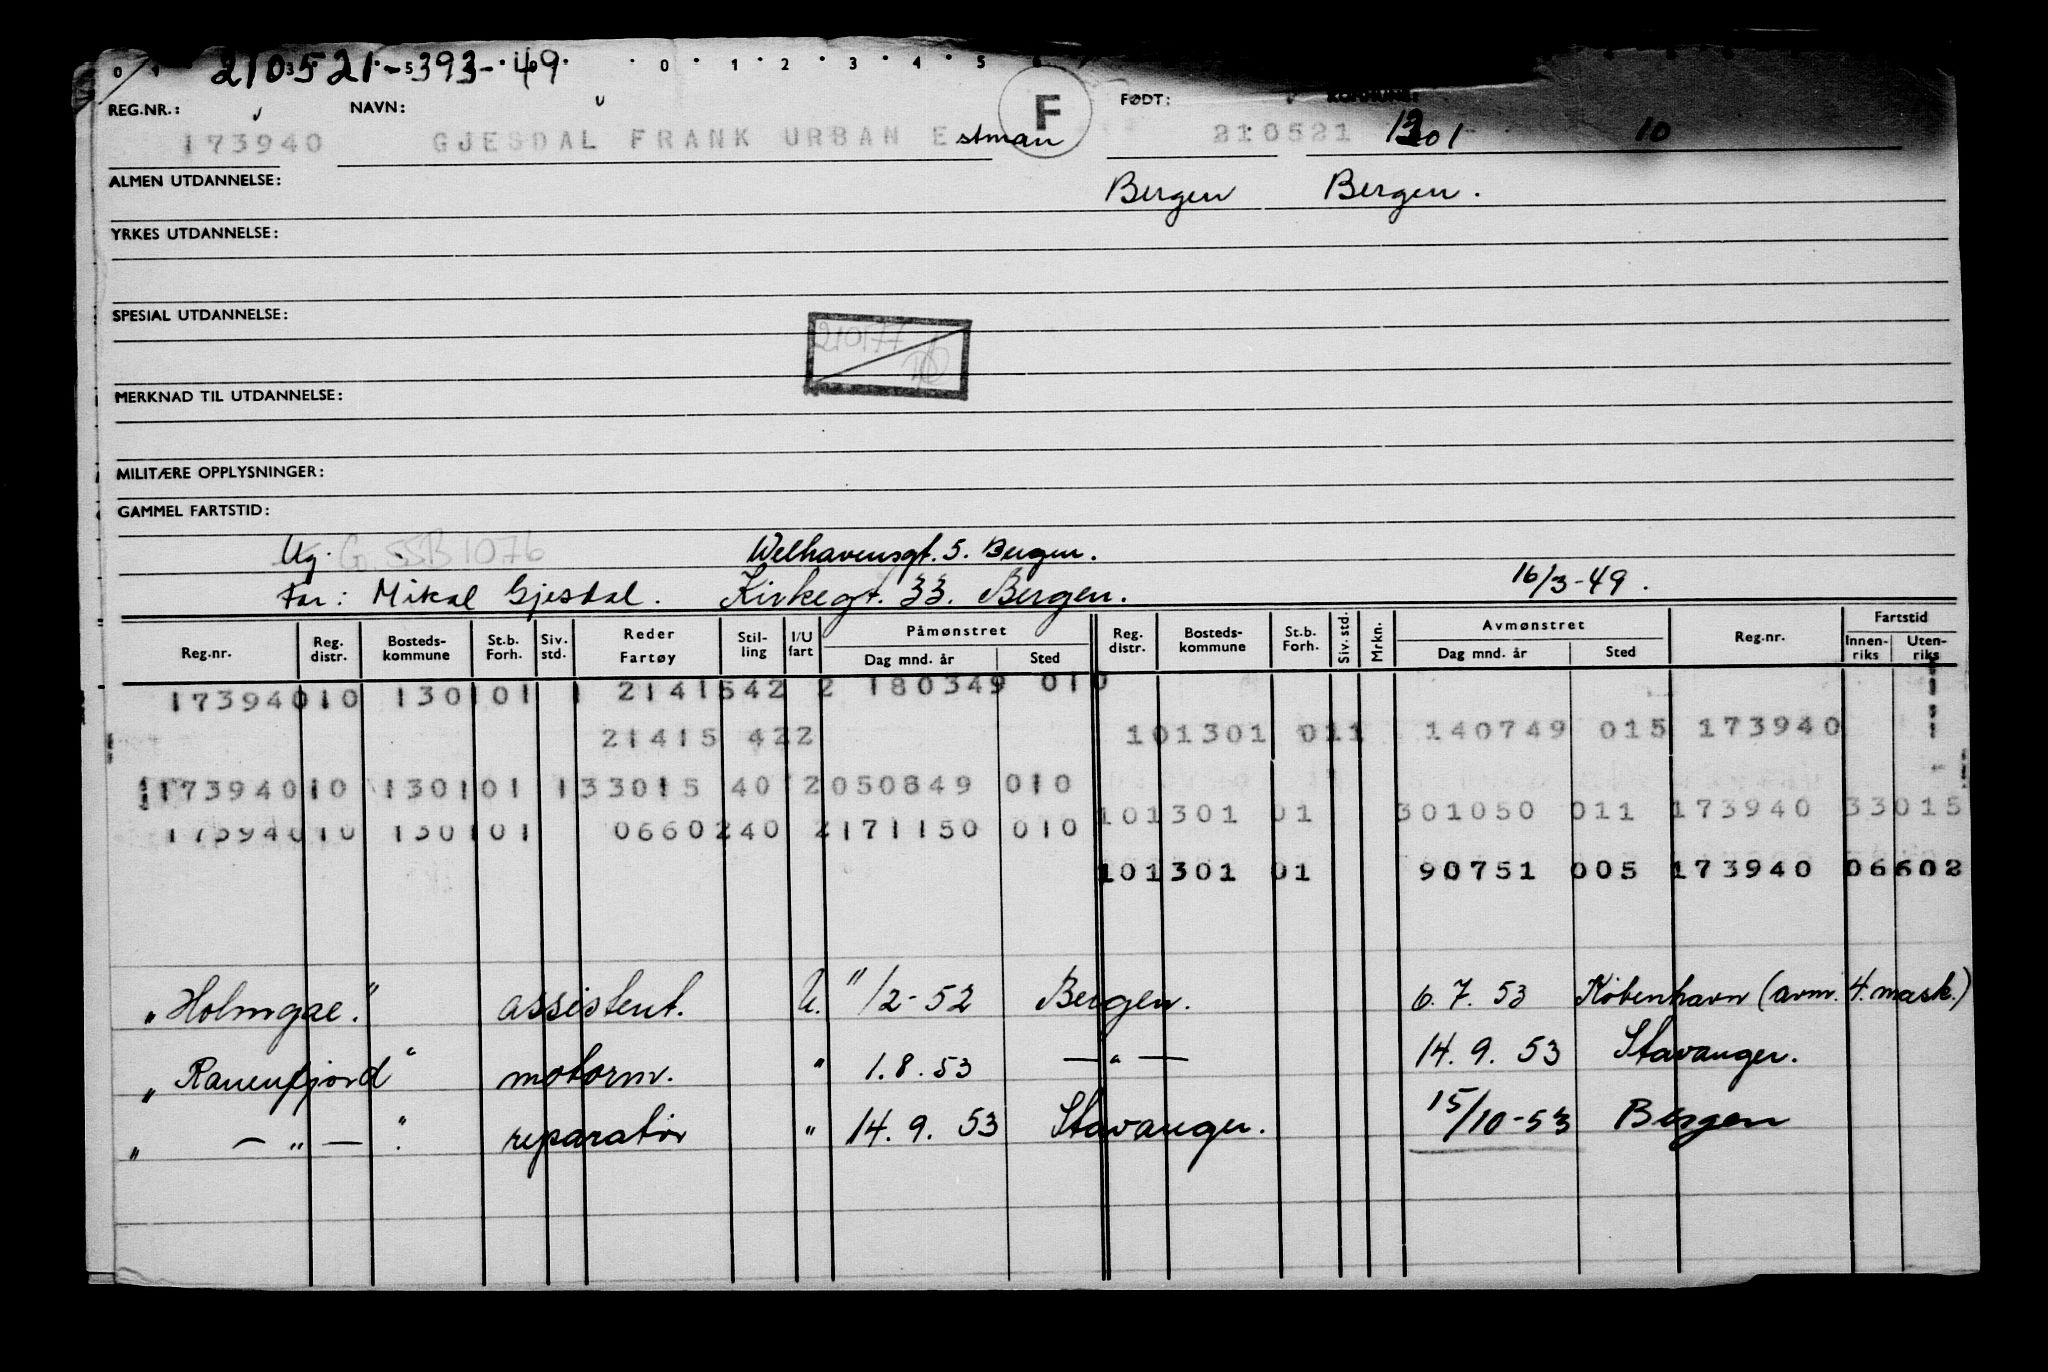 210521-393-49
0 1 2 3 4 5
REG.NR.: NAVN: F FØDT: KOMMUNE:
173940 GJESDAL FRANK URBAN Estman 210521 1301 10
ALMEN UTDANNELSE: Bergen Bergen.
YRKES UTDANNELSE:
SPESIAL UTDANNELSE:
210177
MERKNAD TIL UTDANNELSE:
MILITÆRE OPPLYSNINGER:
GAMMEL FARTSTID:
Ug. G. 55B1076 Welhavensgt. 5. Bergen.
Far: Mikal Gjesdal. Kirkegt. 33. Bergen. 16/3-49.
Reg.nr. Reg. distr. Bosteds-kommune St.b. Forh. Siv. std. Reder Fartøy Stil-ling I/U fart Påmønstret Dag mnd. år Sted Reg. distr. Bosteds-kommune St.b. Forh. Siv. std. Mrkn. Avmønstret Dag mnd. år Sted Reg.nr. Fartstid Innen-riks Uten-riks
173940 10 1301 01 1 21415 42 2 180349 010
21415 422 10 1301 011 140749 015 173940
173940 10 1301 01 1 33015 40 2 050849 010
10 1301 01 301050 011 173940 33015
173940 10 1301 01 06602 40 2 171150 010
10 1301 01 90751 005 173940 06602
"Holmgae." assistent. U. 11/2-52 Bergen. 6.7.53 København (avm. 4. mask.)
"Ranenfjord" motorm. " 1.8.53 — " — 14.9.53 Stavanger.
" — " — " reparatør " 14.9.53 Stavanger. 15/10-53 Bergen